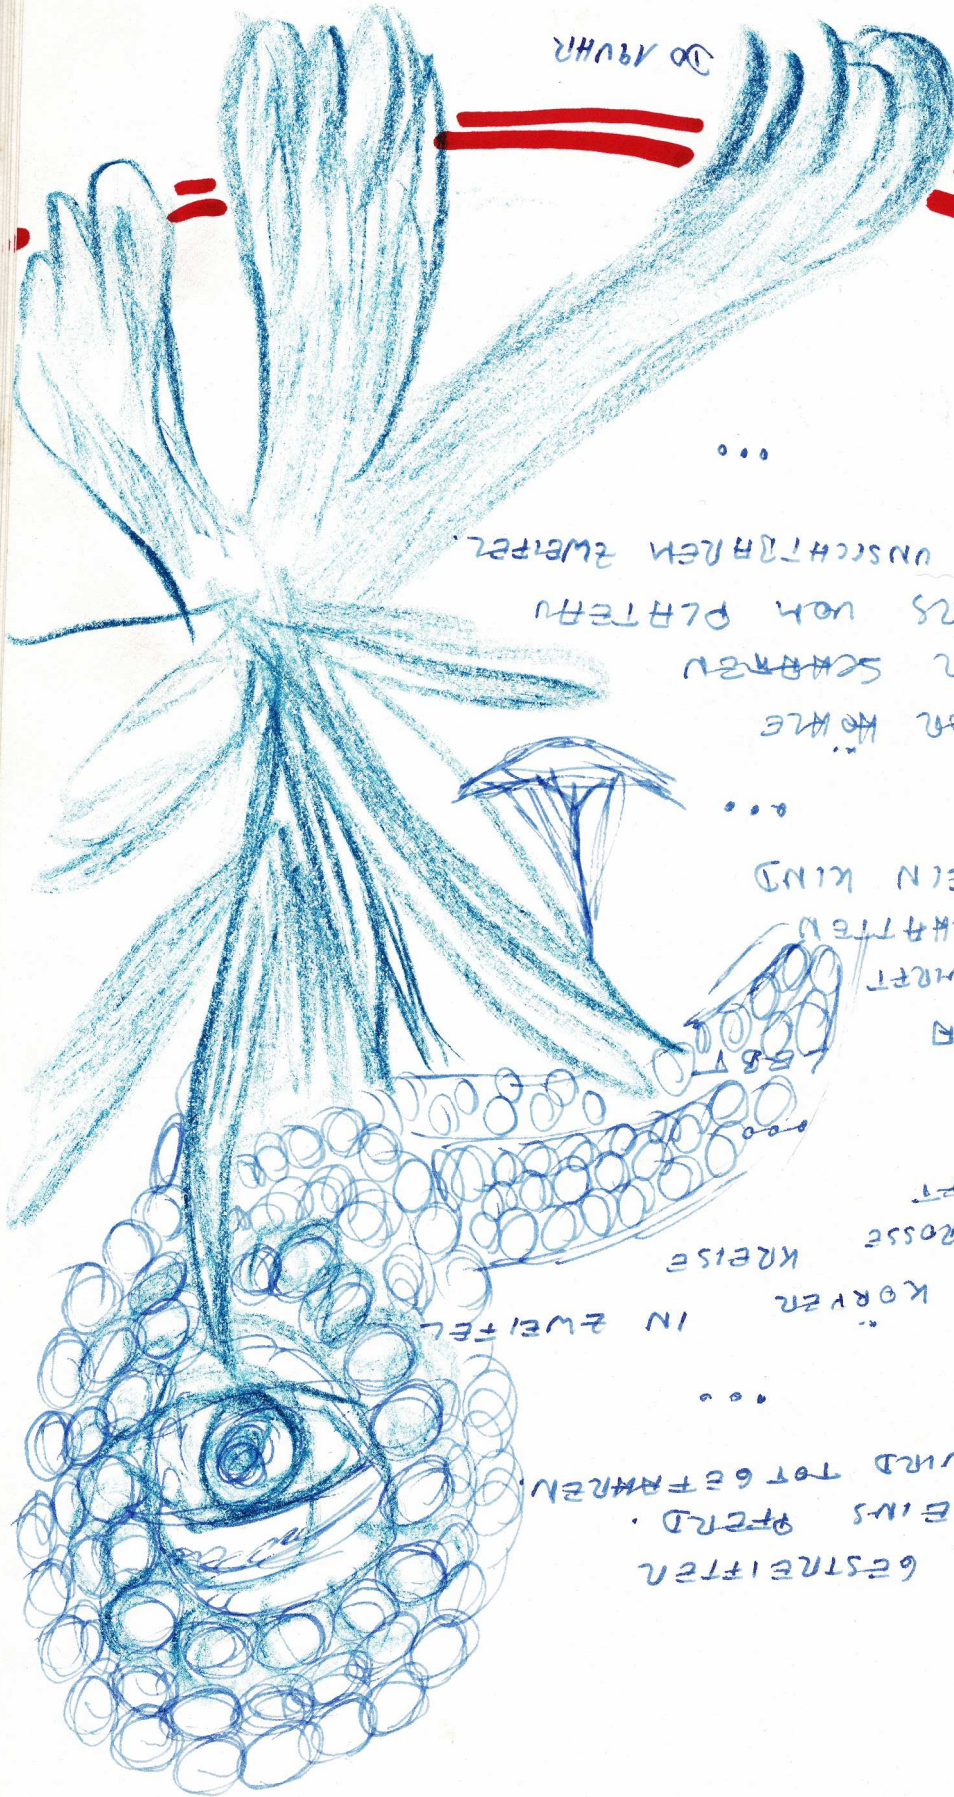 GESTREIFTER
EINS PFERD.
WIRD TOTGEFAHREN.
...
KÖRPER IN ZWEIFEL
ROSSE KREISE
FT
...
LEBT
HATTEN
EIN KIND
...
ER HÖHLE
R
LS VOM PLATEAU
UNSICHTBAREM ZWEIFEL.
...
DO 19UHR